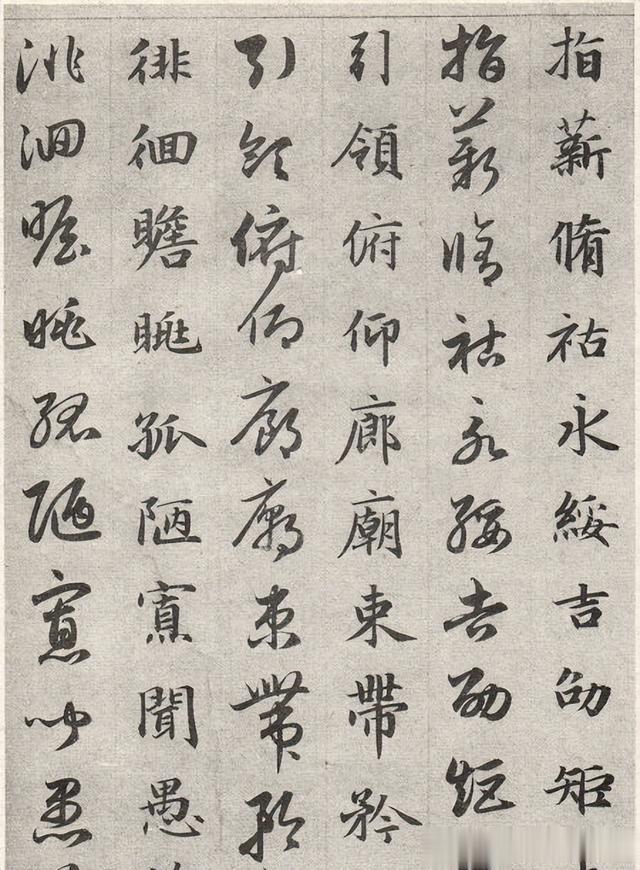 指薪脩祜永綏吉劭矩
指薪脩祜永綏吉劭矩
引領俯仰廊廟束帶矜
引領俯仰廊廟束帶矜
徘徊瞻眺孤陋寡聞愚
徘徊瞻眺孤陋寡聞愚